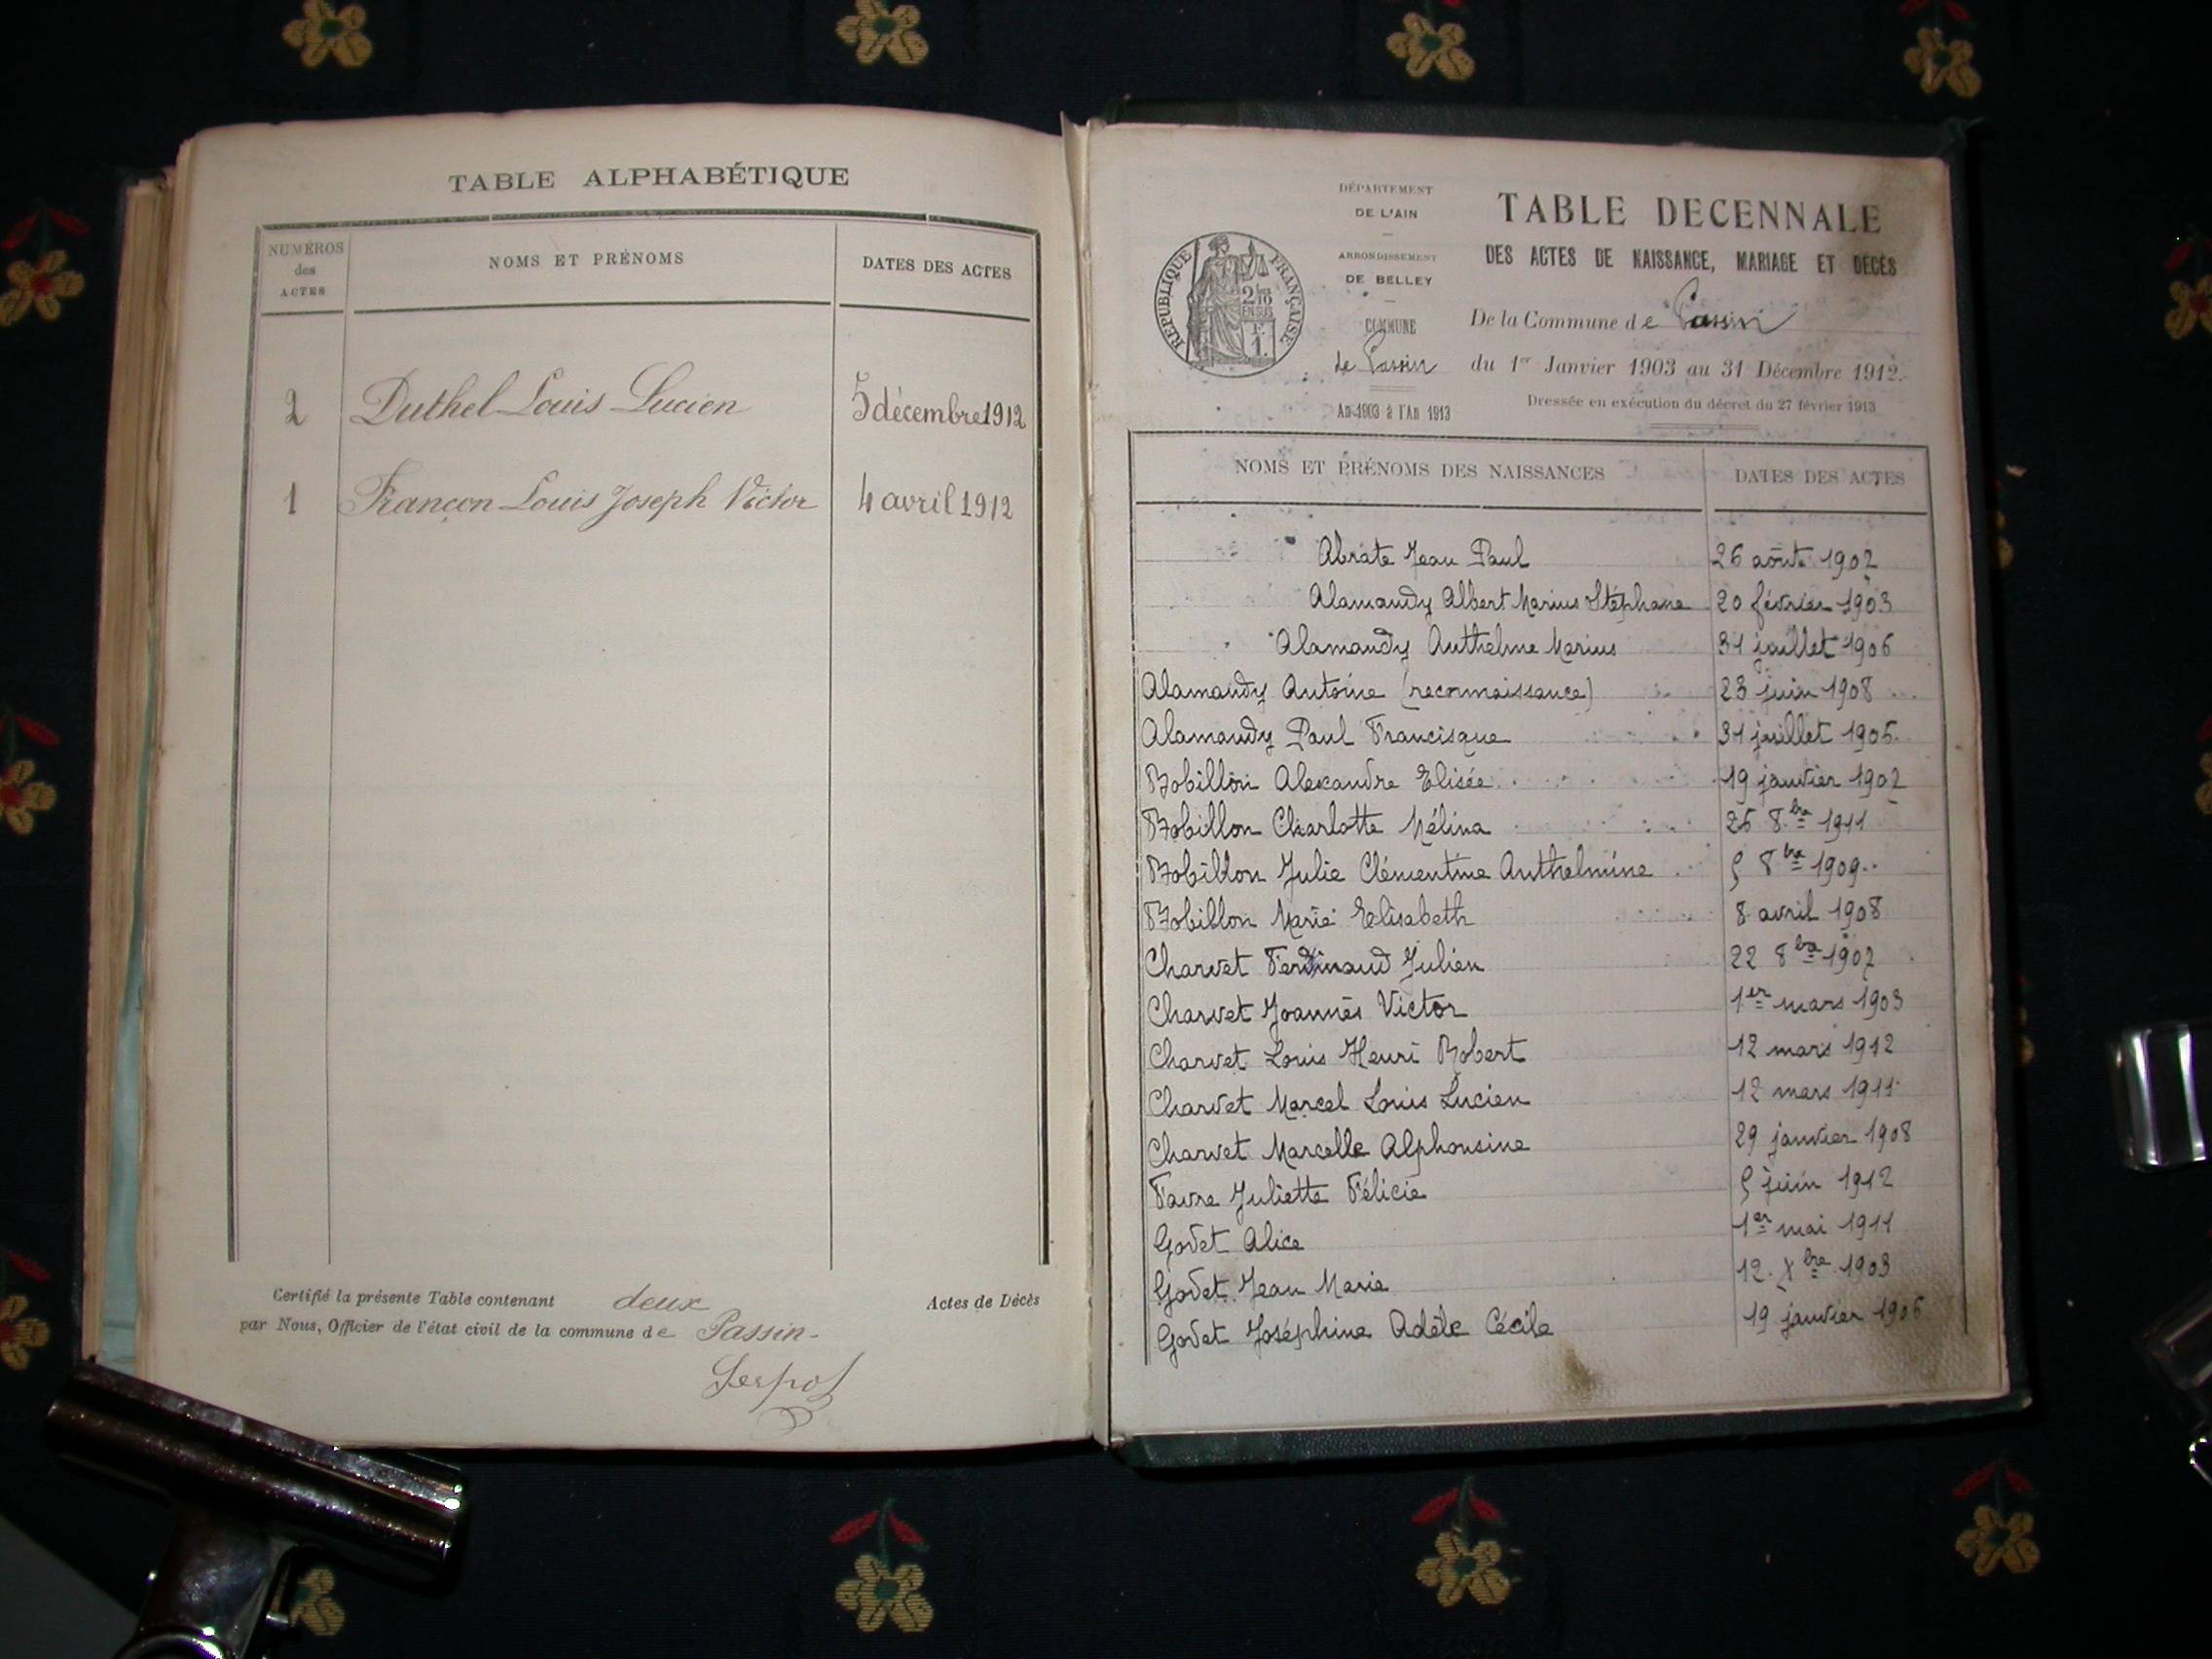 TABLE ALPHABÉTIQUE
NUMÉROS des ACTES
NOMS ET PRÉNOMS
DATES DES ACTES
2 Duthel Louis Lucien 5 décembre 1912
1 Françon Louis Joseph Victor 4 avril 1912
Certifié la présente Table contenant deux Actes de Décès
par Nous, Officier de l'état civil de la commune de Passin
DÉPARTEMENT
DE L'AIN
ARRONDISSEMENT
DE BELLEY
COMMUNE
de Passin
An 1903 à l'An 1913
RÉPUBLIQUE FRANÇAISE
2/10
EN SUS
F.
1.
TABLE DECENNALE
DES ACTES DE NAISSANCE, MARIAGE ET DÉCÈS
De la Commune de Passin
du 1er Janvier 1903 au 31 Décembre 1912.
Dressée en exécution du décret du 27 février 1913
NOMS ET PRÉNOMS DES NAISSANCES
DATES DES ACTES
Abrate Jean Paul 26 août 1902
Alamandy Albert Marius Stéphane 20 février 1903
Alamandy Anthelme Marius 31 juillet 1906
Alamandy Antoine (reconnaissance) 23 juin 1908
Alamandy Paul Francisque 31 juillet 1906
Bobillon Alexandre Elisée 19 janvier 1902
Bobillon Charlotte Mélina 26 8bre 1911
Bobillon Julie Clémentine Anthelmine 5 8bre 1909
Bobillon Marie Elisabeth 8 avril 1908
Charvet Ferdinand Julien 22 8bre 1902
Charvet Joannès Victor 1er mars 1903
Charvet Louis Henri Robert 12 mars 1912
Charvet Marcel Louis Lucien 12 mars 1911
Charvet Marcelle Alphonsine 29 janvier 1908
Favre Juliette Félicie 5 juin 1912
Godet Alice 1er mai 1911
Godet Jean Marie 12 Xbre 1903
Godet Joséphine Adèle Cécile 19 janvier 1906